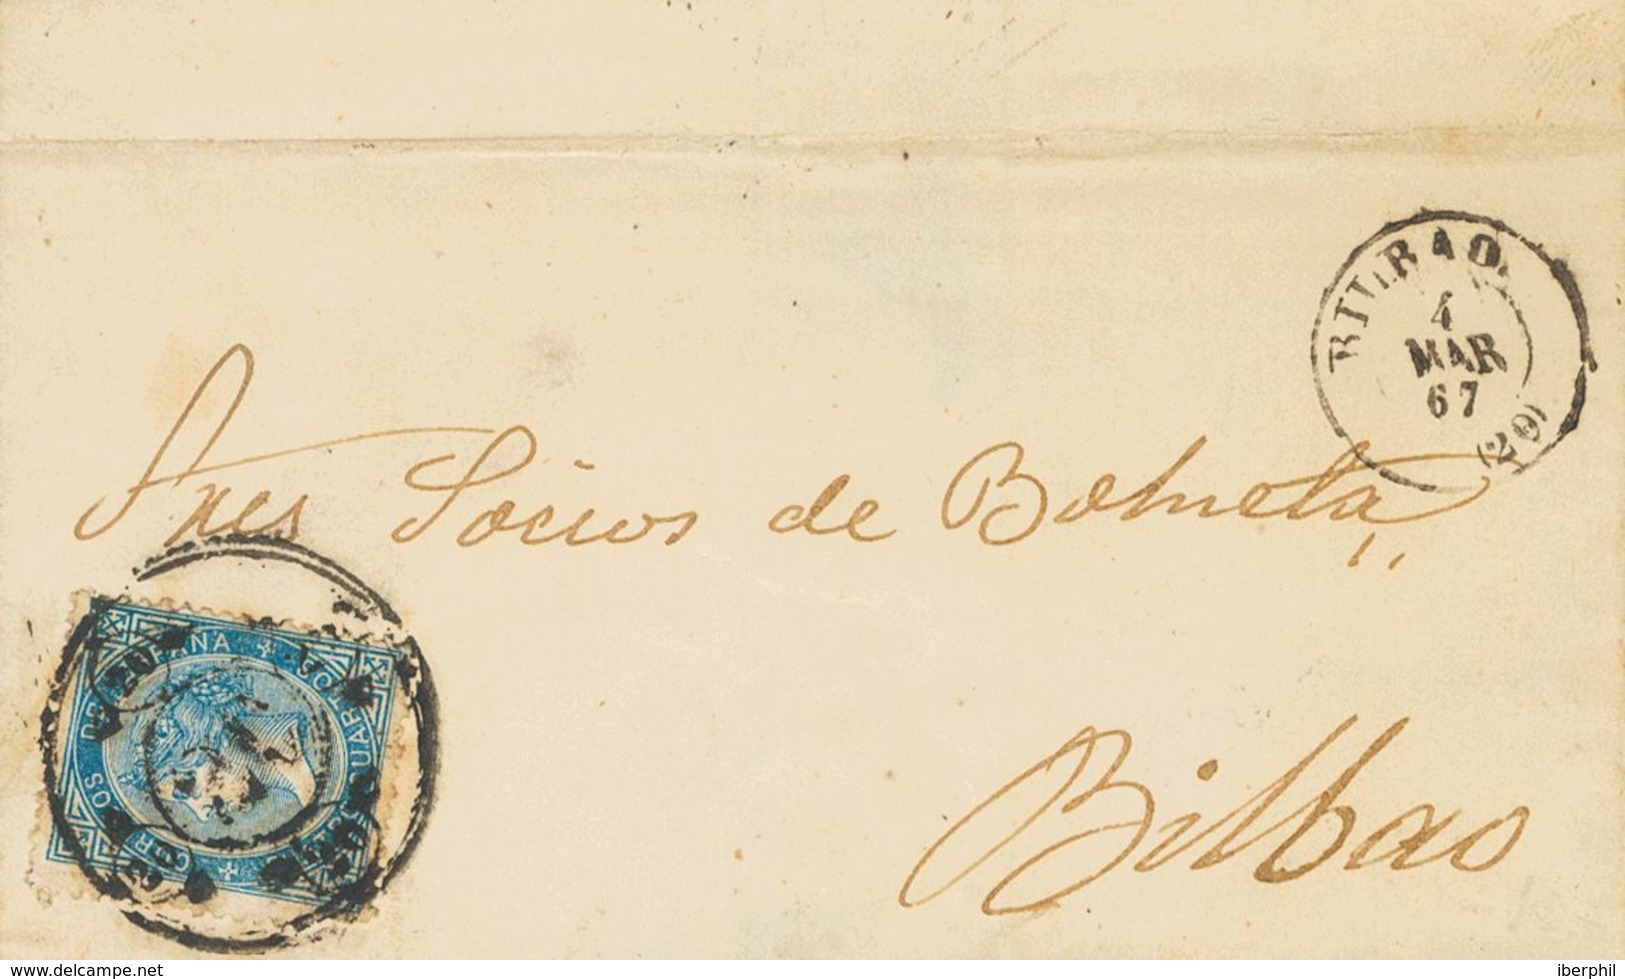 BILBAO
4
MAR
67
(20)
Sres Socios de Bolueta
Bilbao
CORREOS DE ESPAÑA
CUATRO CUARTOS
www.delcampe.net
iberphil